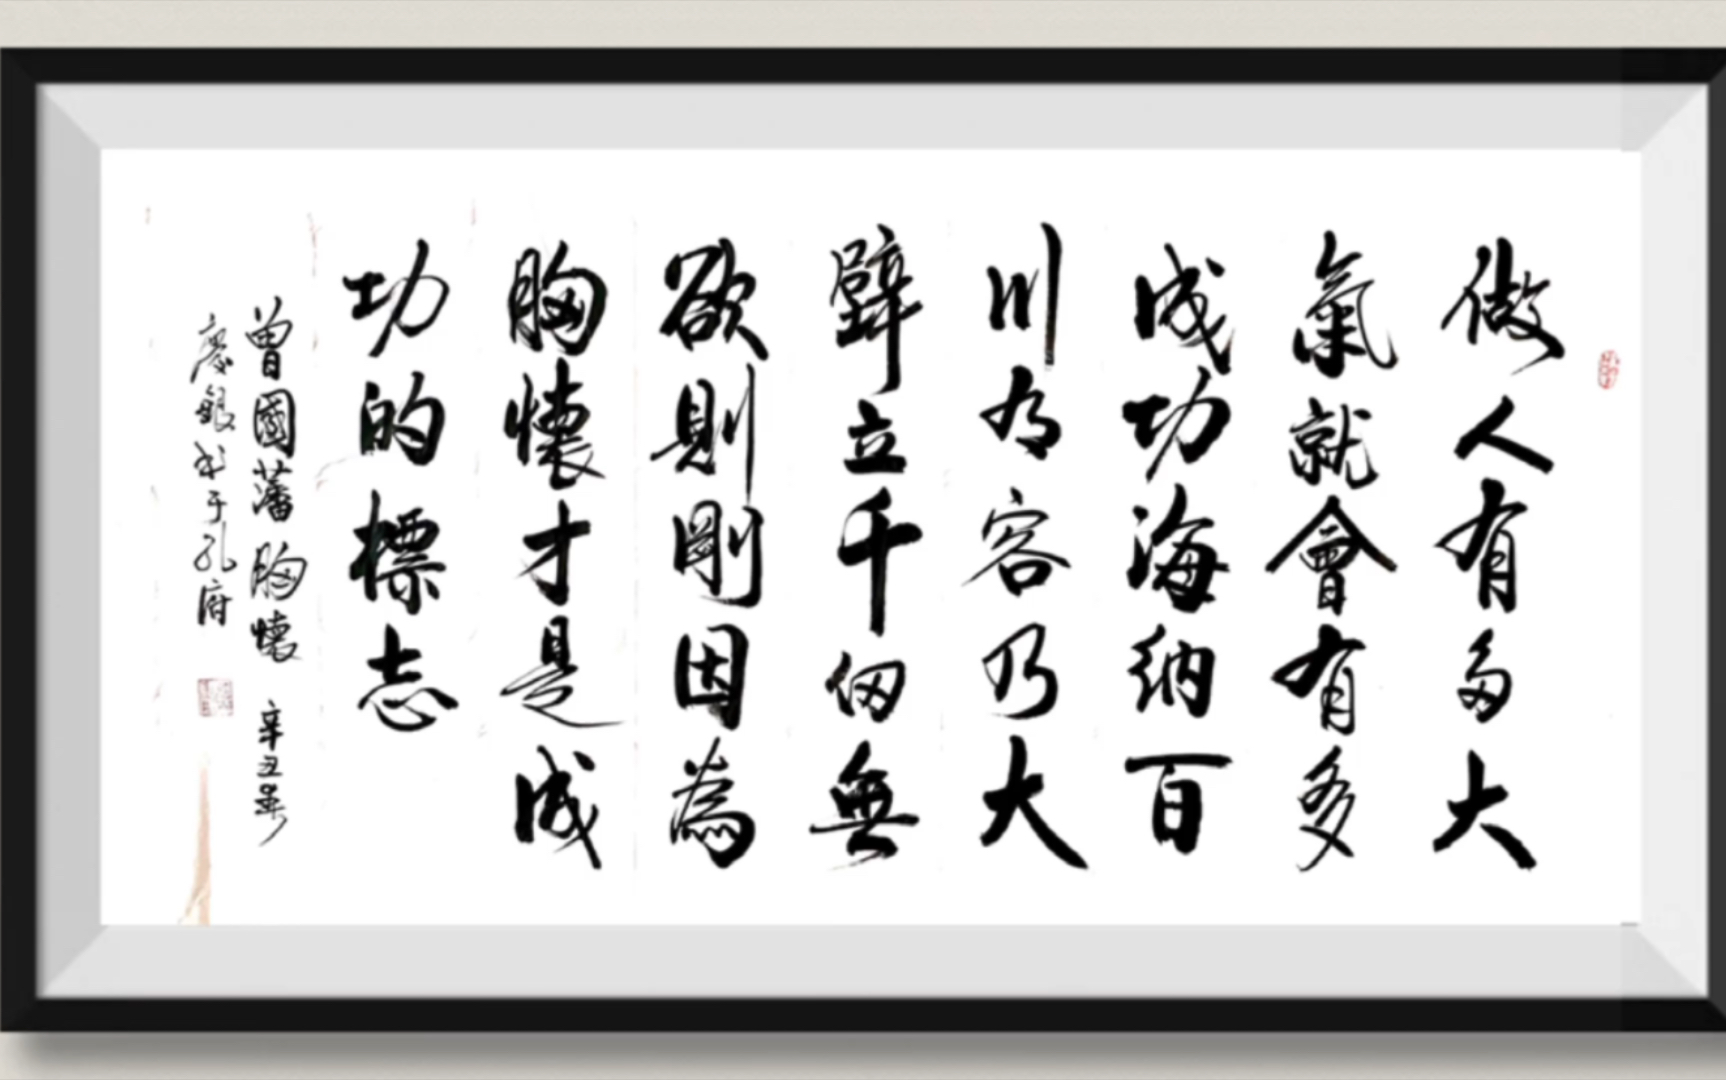 做人有多大
氣就會有多
成功海納百
川有容乃大
壁立千仞無
欲則剛因為
胸懷才是成
功的標志
曾國藩胸懷 辛丑年
慶銀书于孔府